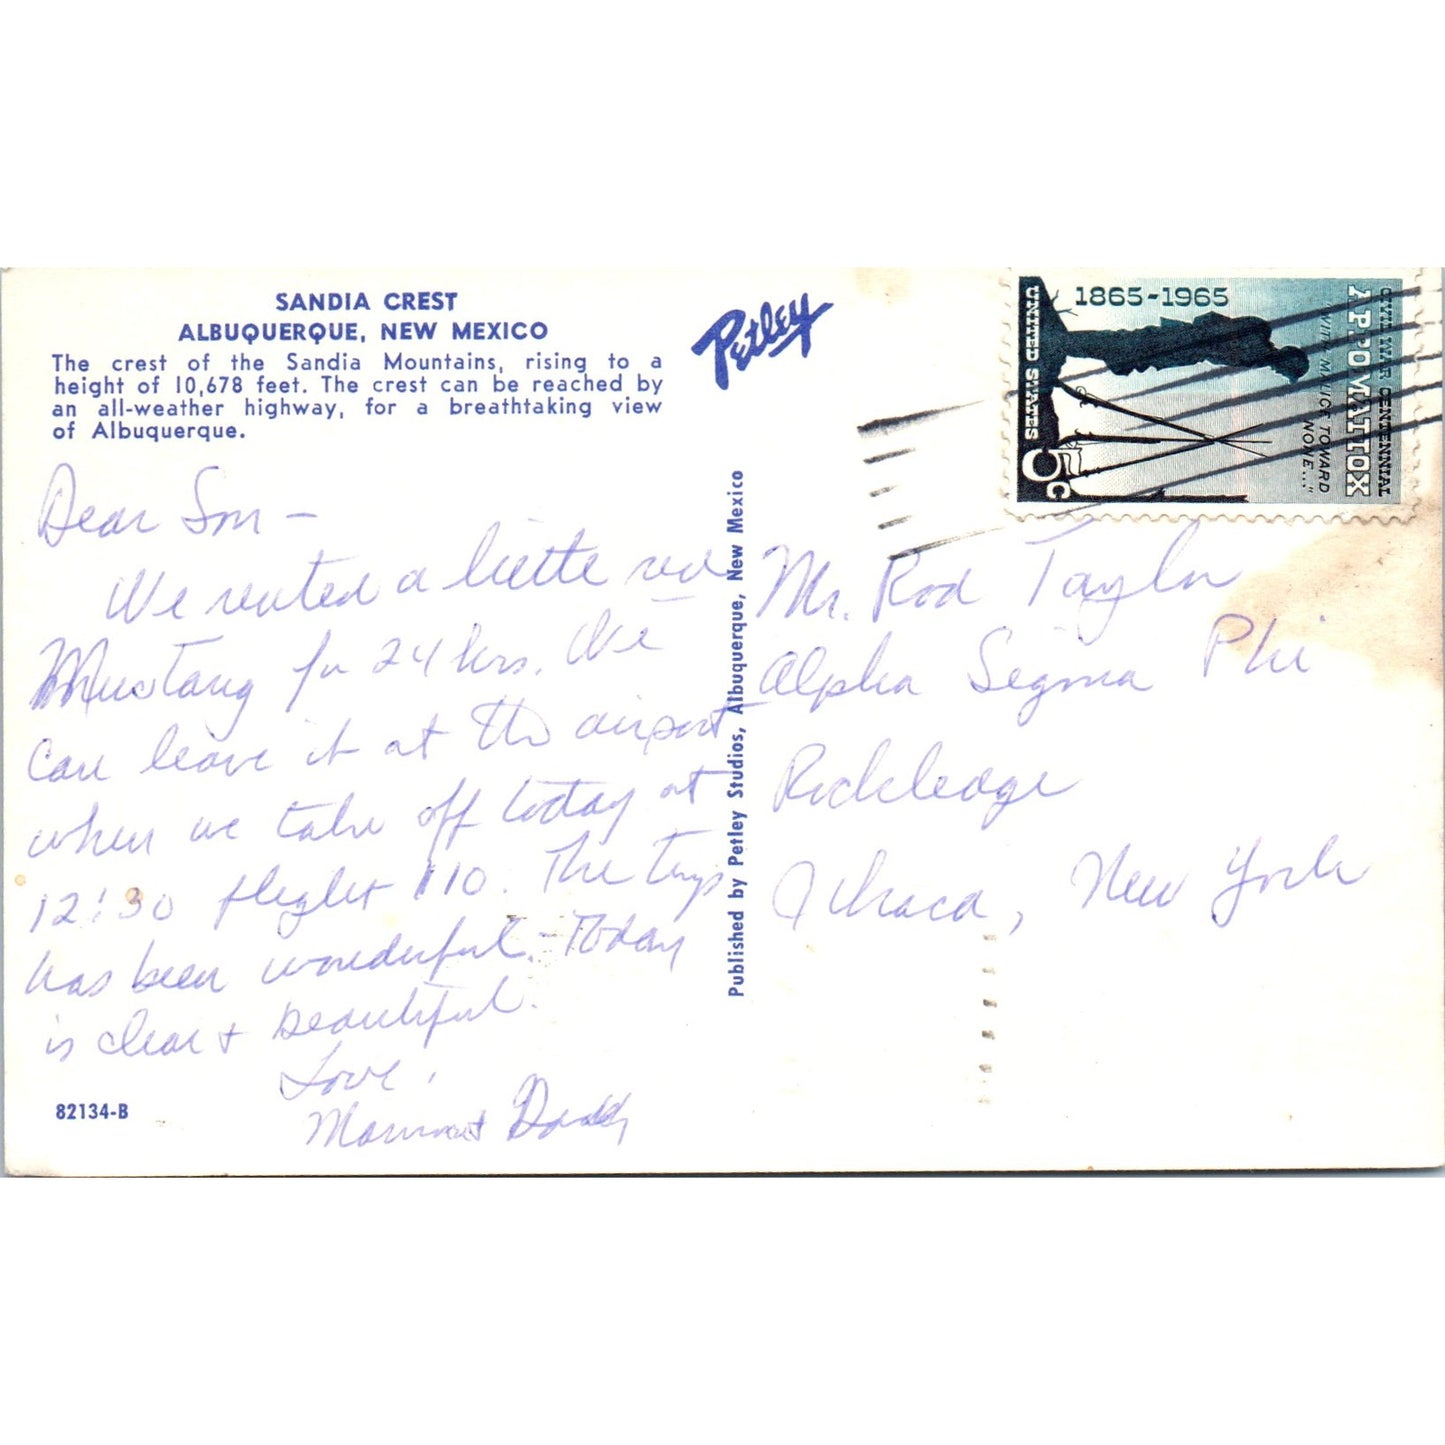 SANDIA CREST
ALBUQUERQUE, NEW MEXICO
The crest of the Sandia Mountains, rising to a
height of 10,678 feet. The crest can be reached by
an all-weather highway, for a breathtaking view
of Albuquerque.
Dear Son -
We rented a little red
Mustang for 24 hrs. We
can leave it at the airport
when we take off today at
12:30 flight 110. The trip
has been wonderful. Today
is clear & beautiful.
Love,
Mom & Daddy
82134-B
Petley
Published by Petley Studios, Albuquerque, New Mexico
1865-1965
UNITED STATES
5c
CIVIL WAR CENTENNIAL
APPOMATTOX
"WITH MALICE TOWARD
NONE..."
Mr. Rod Taylor
Alpha Sigma Phi
Rockledge
Ithaca, New York